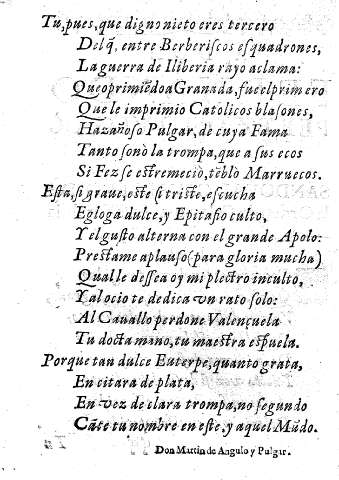 Tu, pues, que digno nieto eres tercero
Del q̃, entre Berberiscos esquadrones,
La guerra de Iliberia rayo aclama:
Que oprimiẽdo a Granada, fue el primero
Que le imprimio Catolicos blasones,
Hazañoso Pulgar, de cuya Fama
Tanto sonò la trompa, que a sus ecos
Si Fez se estremeciò, tẽblò Marruecos.
Esta, si graue, este si triste, escucha
Egloga dulce, y Epitafio culto,
Y el gusto alterna con el grande Apolo:
Prestame aplauso (para gloria mucha)
Qual le dessea oy mi plectro inculto,
Y al ocio te dedica vn rato solo:
Al Cauallo perdone Valençuela
Tu docta mano, tu maestra espuela.
Porque tan dulce Euterpe, quanto grata,
En citara de plata,
En vez de clara trompa, no segundo
Cãte tu nombre en este, y aquel Mũdo.
Don Martin de Angulo y Pulgar.